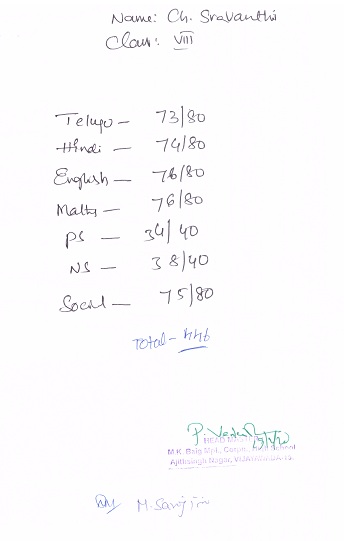 Name: Ch. Sravanthi
Class: VIII
Telugu – 73/80
Hindi – 74/80
English – 76/80
Maths – 76/80
PS – 34/40
NS – 38/40
Social – 75/80
Total – 446
P.
HEAD
M.K. Baig Mpl. Corpn. High School
Ajithsingh Nagar, VIJAYAWADA
M.